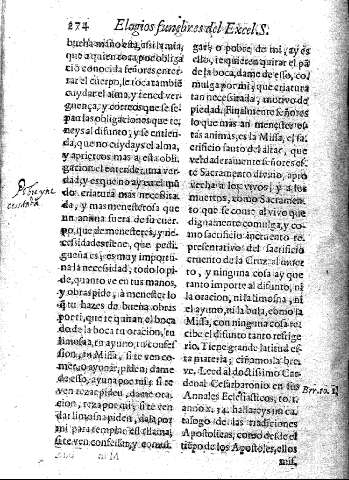 274 Elogios funebres del Excel.S.
buena maño esta, asi la mia,
que a quien toca por obligaciò
conocida señores enterrar
el cuerpo, le toca tambiẽ
cuydar el alma, y tened verguença,
y correos que se sepan
las obligaciones que teneys
al difunto, y se entienda,
que no cuydays el alma,
y aprietos mas a esta obligacion
el entender, una verdad,
y es que no ay en el mũdo
criatura mas necessitada,
y mas menesterosa que
un anima fuera de su cuerpo,
que de menesteres, y necessidades
tiene, que pedigueña
es; es muy importuna
la necessidad, todo lo pide,
quanto ve en tus manos,
y obras pide, à menester lo
que tu hazes de buenas obras
por ti, que te quitan el bocado
de la boca tu oracion, tu
limosna, tu ayuno, tu confession,
tu Missa, si te ven comer,
o ayonar, piden; dame
de esso, ayuna por mi; si te
ven rezar piden, dame oracion,
reza por mi; si te ven
dar limosna piden, da la por
mi
si te ven confessar, y comulgar;
o pobre de mi, ay es
ello, te quieren quitar el pã
de la boca, dame de esso, comulga
por mi; que criatura
tan necessitada, motivo de
piedad. Finalmente señores
lo que mas an menester estas
animas, es la Missa, el sacrificio
santo del altar, que
verdaderamente señores este
Sacramento divino, aprovecha
a los vivos, y a los
muertos, como Sacramento
que se come al vivo que
dignamente comulga, y como
sacrificio incruento representativo
del sacrificio
cruento de la Cruz al muerto,
y ninguna cosa ay que
tanto importe al difunto, ni
la oracion, ni la limosna, ni
el ayuno, ni la bula, como la
Missa, con ninguna cosa recibe
el difunto tanto refrigerio.
Tiene grande latitud esta
materia; ciñamosla breve.
Leed al doctissimo Cardenal
Cesar baronio en sus
Annales Eclesiasticos, to. 1.
anno x. 34. hallareys en catalogo
de las tradiciones
Apostolicas, como desde el
tiẽpo de los Apostoles, ellos
mis.
Bar. to. 1.